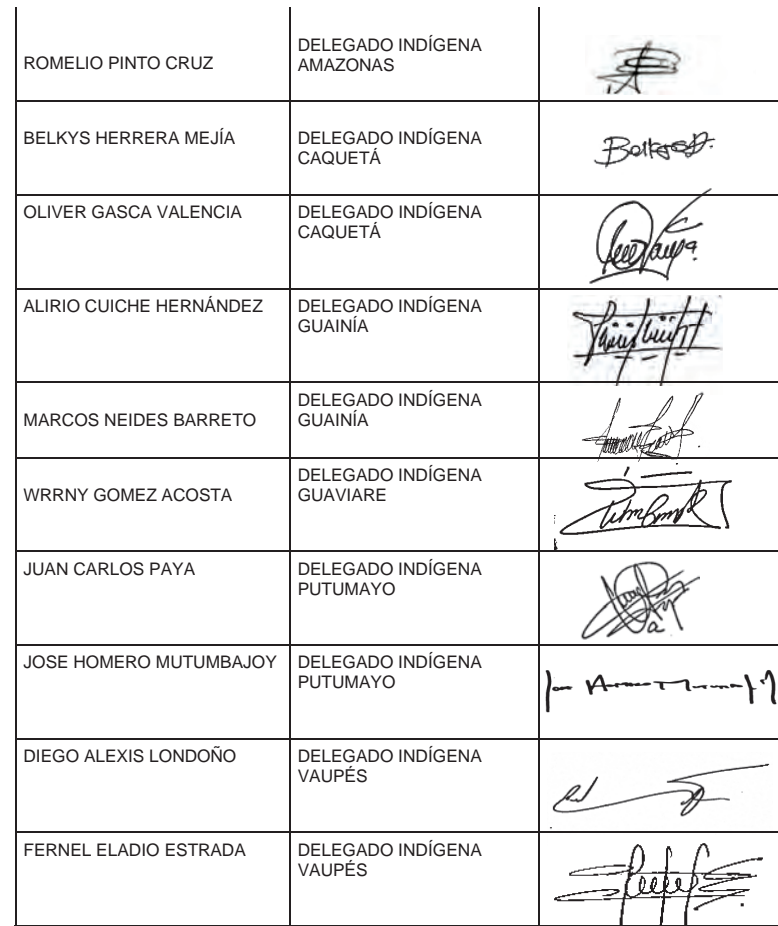 ROMELIO PINTO CRUZ
DELEGADO INDÍGENA
AMAZONAS
BELKYS HERRERA MEJÍA
DELEGADO INDÍGENA
CAQUETÁ
OLIVER GASCA VALENCIA
DELEGADO INDÍGENA
CAQUETÁ
ALIRIO CUICHE HERNÁNDEZ
DELEGADO INDÍGENA
GUAINÍA
MARCOS NEIDES BARRETO
DELEGADO INDÍGENA
GUAINÍA
WRRNY GOMEZ ACOSTA
DELEGADO INDÍGENA
GUAVIARE
JUAN CARLOS PAYA
DELEGADO INDÍGENA
PUTUMAYO
JOSE HOMERO MUTUMBAJOY
DELEGADO INDÍGENA
PUTUMAYO
DIEGO ALEXIS LONDOÑO
DELEGADO INDÍGENA
VAUPÉS
FERNEL ELADIO ESTRADA
DELEGADO INDÍGENA
VAUPÉS